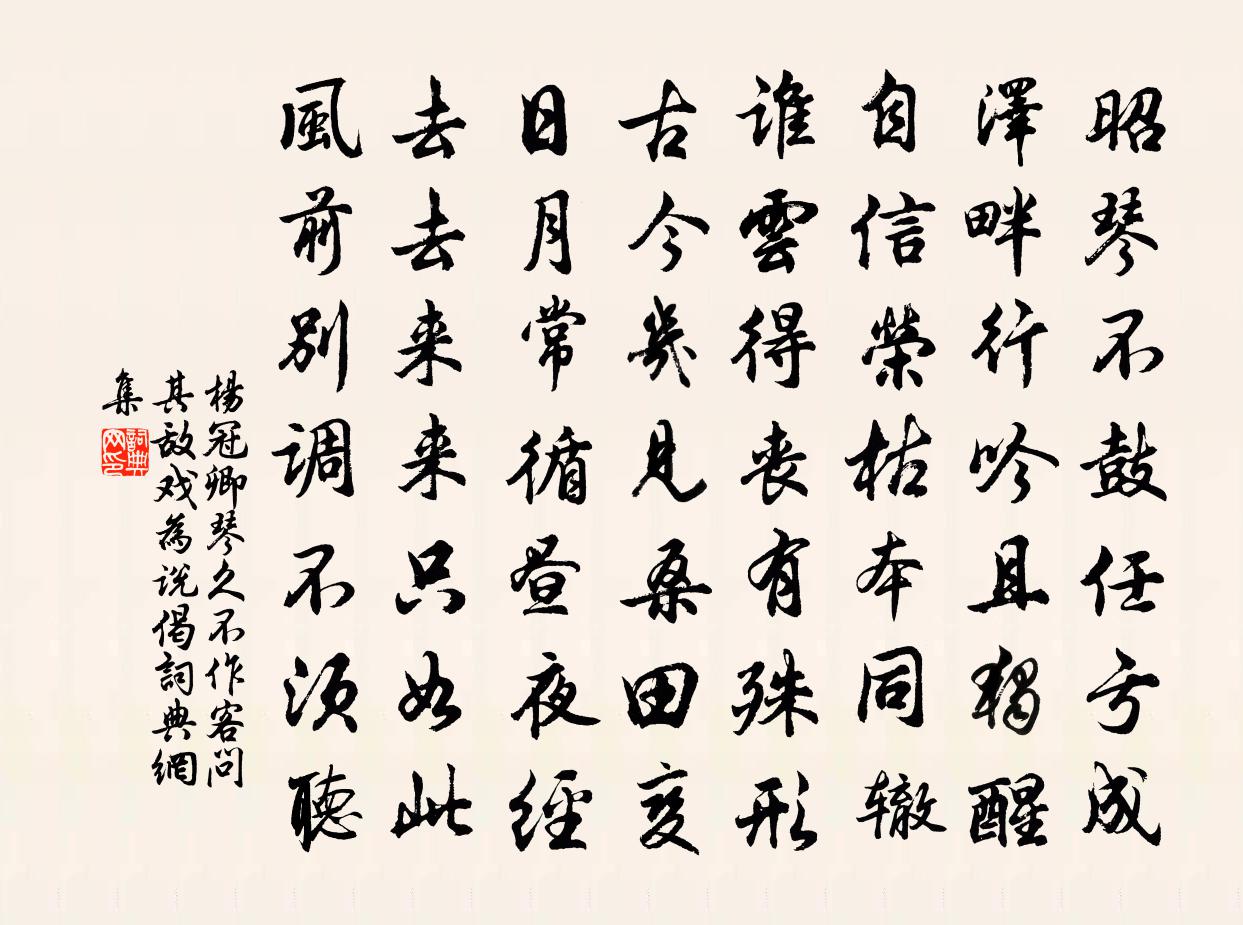 昭琴不鼓任亏成
澤畔行吟且獨醒
自信榮枯本同辙
谁雲得丧有殊形
古今幾見桑田变
日月常循昼夜經
去去来来只如此
風前别调不须聽
楊冠卿琴久不作客问
其故戏為说偈詞典網
集
詞典网印